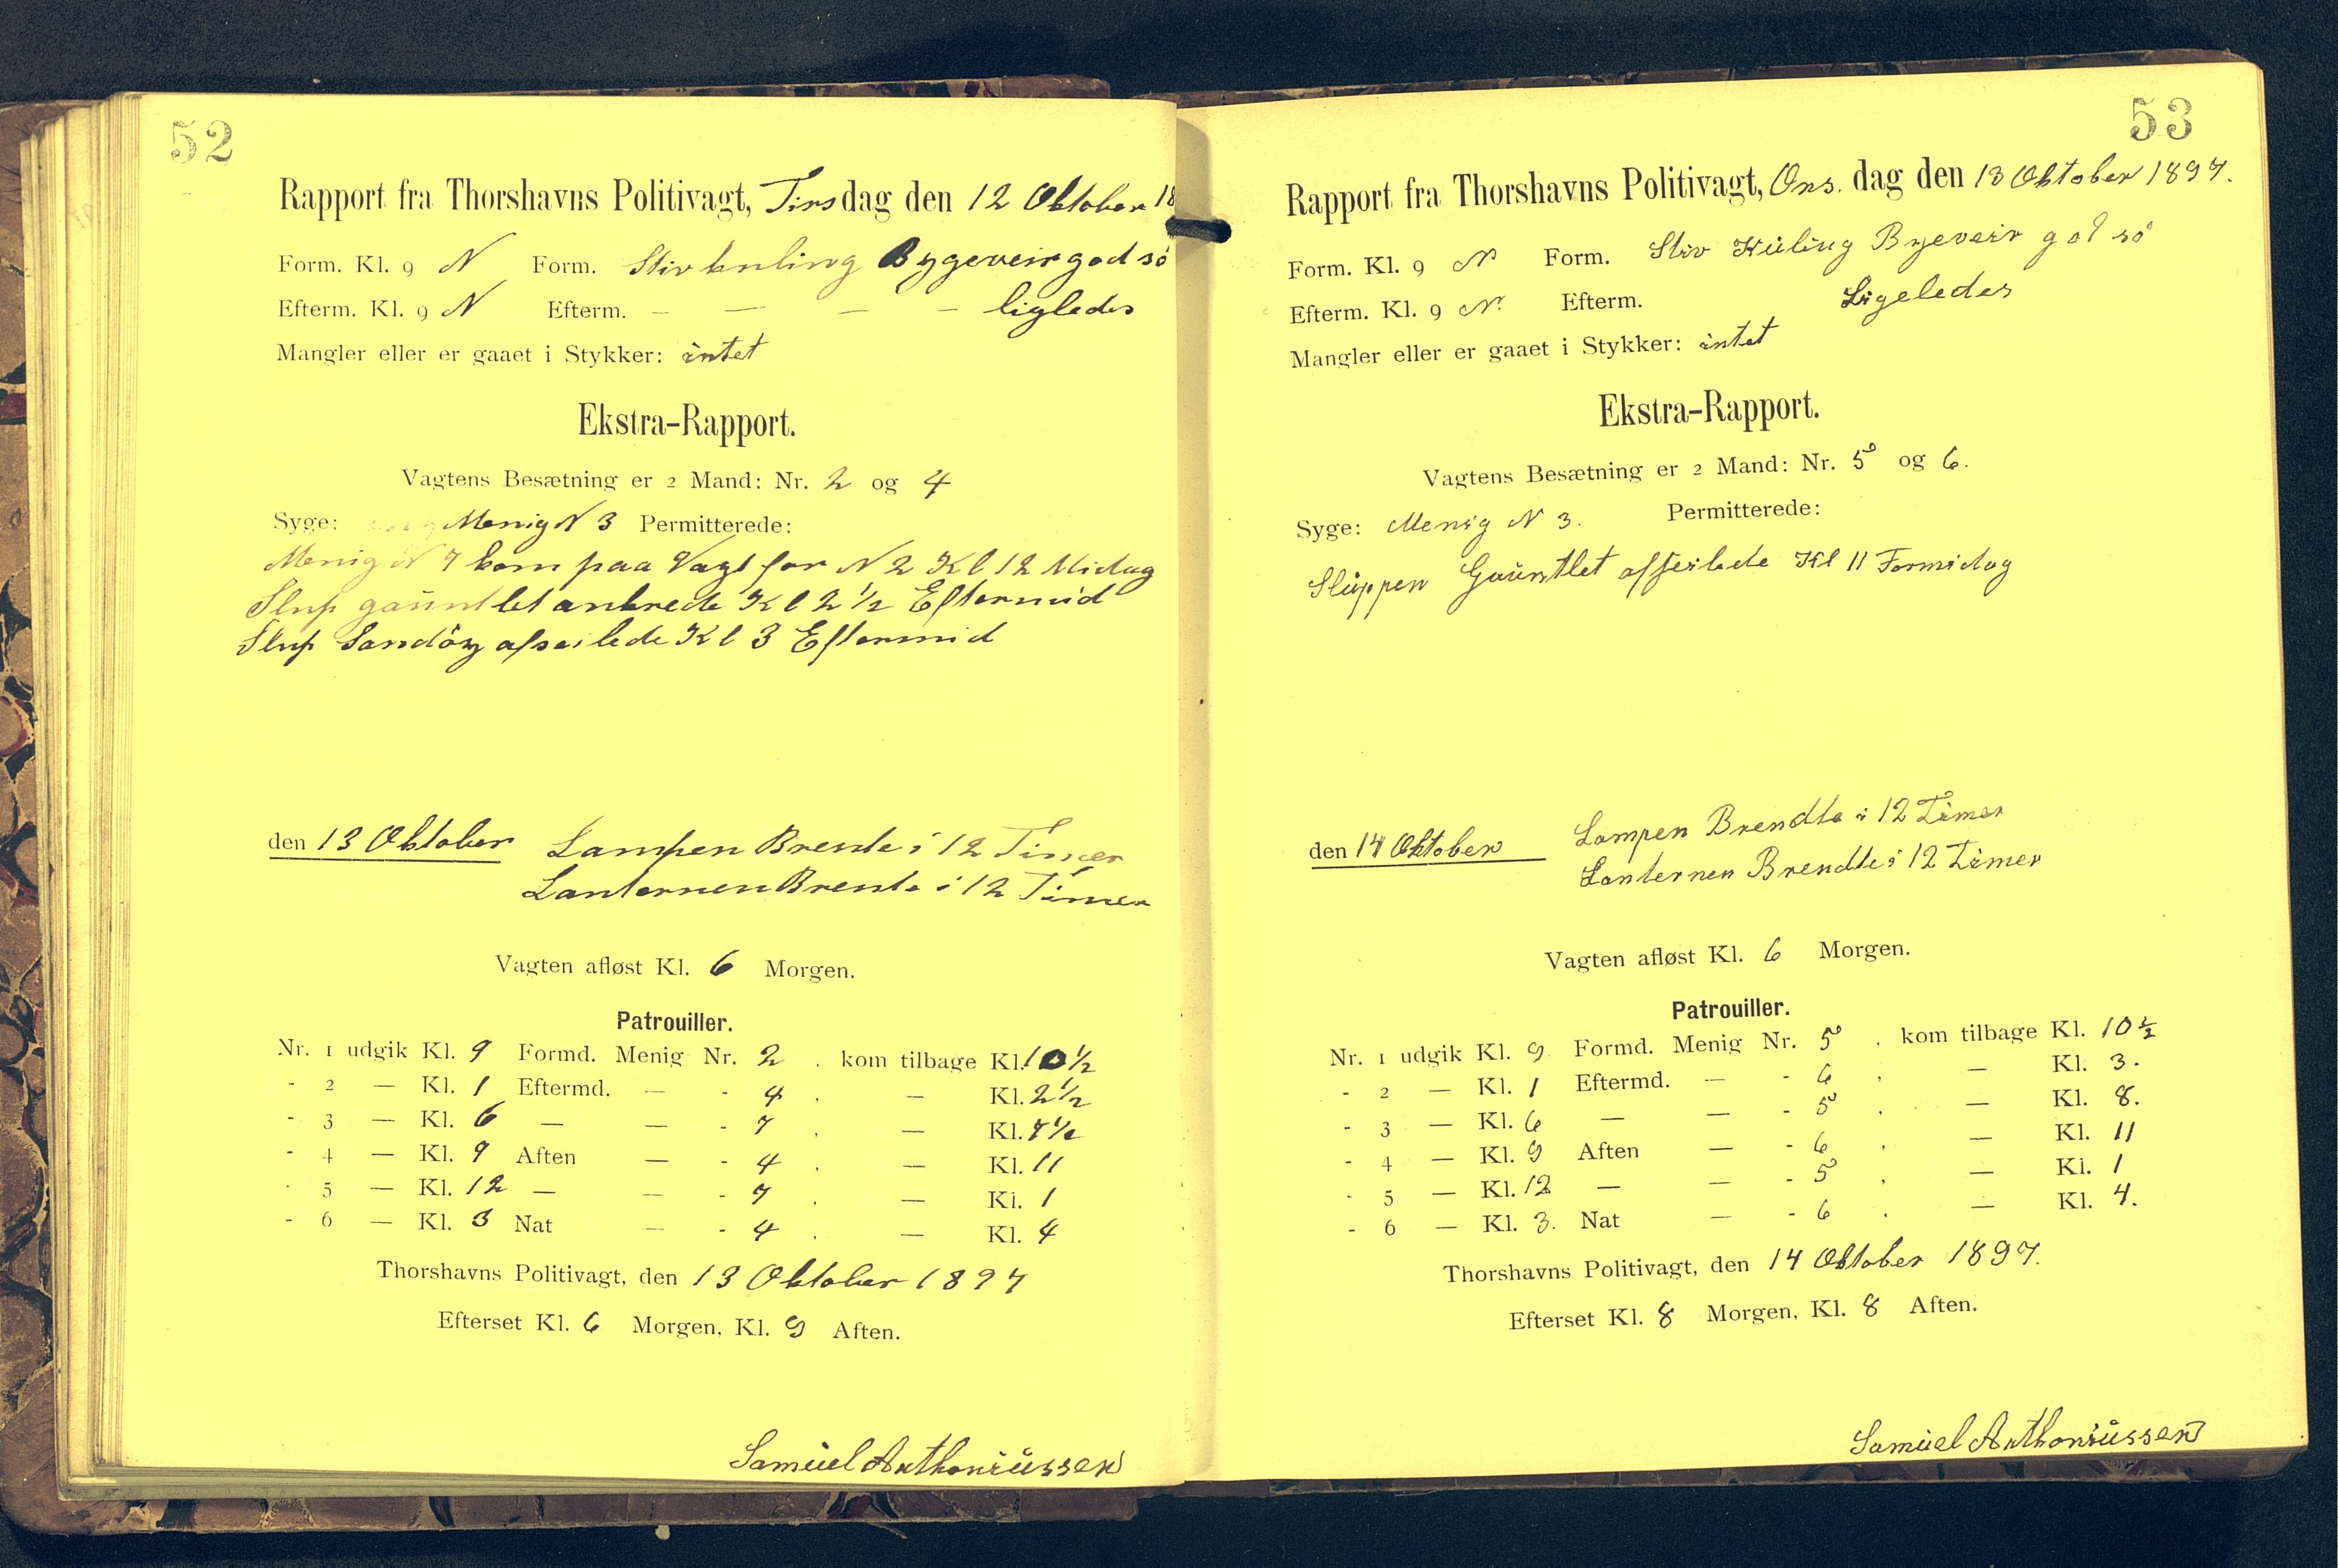 52
Rapport fra Thorshavns Politivagt, Tirsdag den 12 Oktober 18
Form. Kl. 9 N Form. Stivkuling Bygeveir god sö
Efterm. Kl. 9 N Efterm. — — — — ligledes
Mangler eller er gaaet i Stykker: intet
Ekstra-Rapport.
Vagtens Besætning er 2 Mand: Nr. 2 og 4
Syge: Menig N 3 Permitterede:
Menig N 7 kom paa Vagt for N 2 Kl 12 Midag
Slup gauntlet ankrede Kl 2 1/2 Eftermid
Slup Sandöy afseilede Kl 3 Eftermid
den 13 Oktober Lampen Brente i 12 Timer
Lanternen Brente i 12 Timer
Vagten afløst Kl. 6 Morgen.
Patrouiller.
Nr. 1 udgik Kl. 9 Formd. Menig Nr. 2 . kom tilbage Kl. 10 1/2
- 2 — Kl. 1 Eftermd. — - 4 . — Kl. 2 1/2
- 3 — Kl. 6 — — - 7 . — Kl. 7 1/2
- 4 — Kl. 9 Aften — - 4 . — Kl. 11
- 5 — Kl. 12 — — - 7 . — Kl. 1
- 6 — Kl. 3 Nat — - 4 . — Kl. 4
Thorshavns Politivagt, den 13 Oktober 1897
Efterset Kl. 6 Morgen, Kl. 9 Aften.
Samuel Anthoniussen
53
Rapport fra Thorshavns Politivagt, Ons. dag den 13 Oktober 1897.
Form. Kl. 9 N Form. Stiv Kuling Byeveir god sö
Efterm. Kl. 9 N. Efterm. Ligeledes
Mangler eller er gaaet i Stykker: intet
Ekstra-Rapport.
Vagtens Besætning er 2 Mand: Nr. 5 og 6.
Syge: Menig N 3. Permitterede:
Sluppen Gauntlet afseilede Kl 11 Formidag
den 14 Oktober Lampen Brendte i 12 Timer
Lanternen Brendte i 12 Timer
Vagten afløst Kl. 6 Morgen.
Patrouiller.
Nr. 1 udgik Kl. 9 Formd. Menig Nr. 5 . kom tilbage Kl. 10 1/2
- 2 — Kl. 1 Eftermd. — - 6 . — Kl. 3.
- 3 — Kl. 6 — — - 5 . — Kl. 8.
- 4 — Kl. 9 Aften — - 6 . — Kl. 11
- 5 — Kl. 12 — — - 5 . — Kl. 1
- 6 — Kl. 3. Nat — - 6 . — Kl. 4.
Thorshavns Politivagt, den 14 Oktober 1897.
Efterset Kl. 8 Morgen, Kl. 8 Aften.
Samuel Anthoniussen